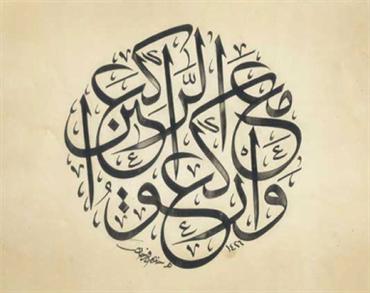 وَارْكَعُوا مَعَ الرَّاكِعِينَ